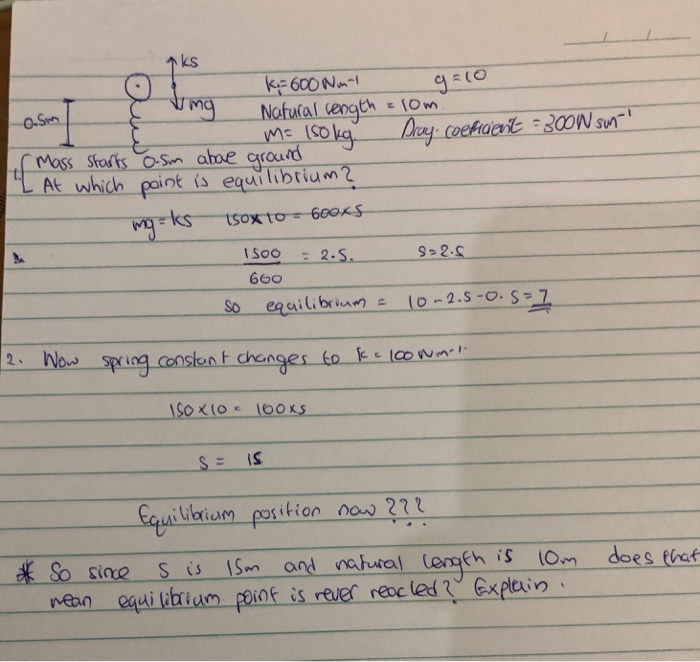 ks
k=600Nm-1 g=10
mg Natural length = 10m
0.5m
m= 150kg Drag coefficient = 300Nsm-1
1. Mass starts 0.5m above ground
At which point is equilibrium?
mg=ks 150x10 = 600xs
1500/600 = 2.5. s=2.5
so equilibrium = 10-2.5-0.5=7
2. Now spring constant changes to k=100Nm-1.
150x10 = 100xs
s = 15
Equilibrium position now ???
* So since s is 15m and natural length is 10m does that
mean equilibrium point is never reached? Explain.